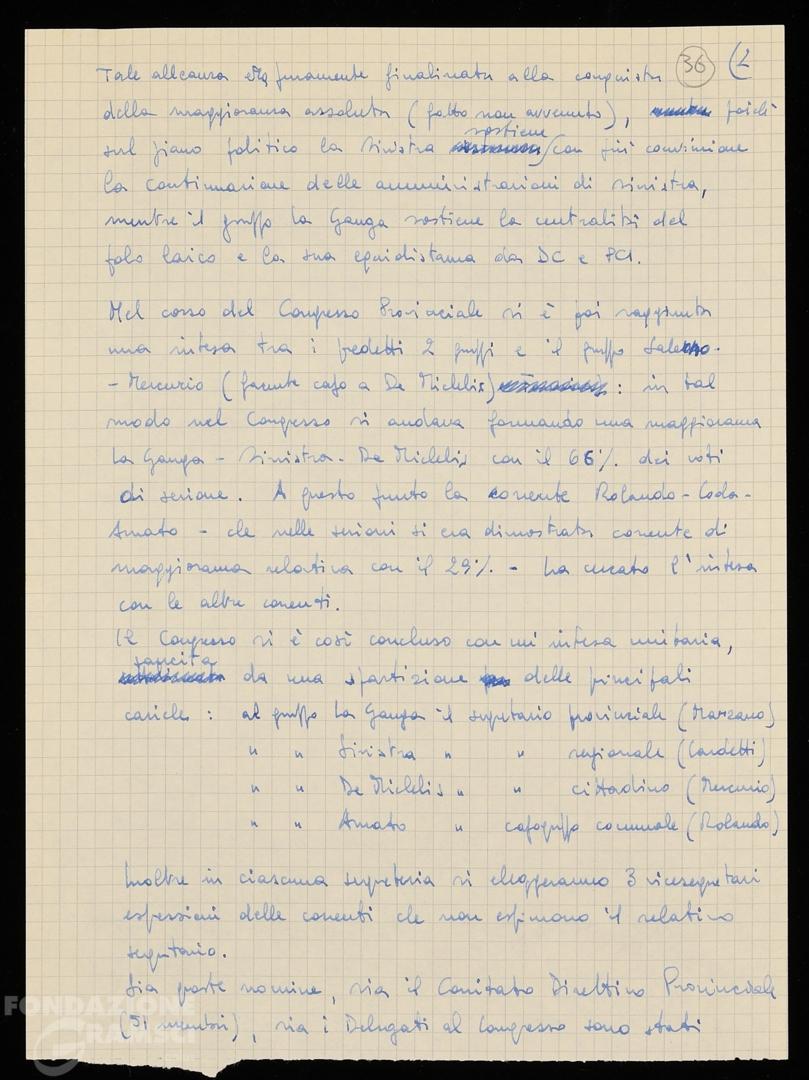 36 (2
Tale alleanza era puramente finalizzata alla conquista
della maggioranza assoluta (fatto non avvenuto), poichè
sul piano politico la Sinistra sostiene con più convinzione
la continuazione delle amministrazioni di sinistra,
mentre il gruppo La Ganga sostiene la centralità del
polo laico e la sua equidistanza da DC e PCI.
Nel corso del Congresso Provinciale si è poi raggiunta
una intesa tra i predetti 2 gruppi e il gruppo Salerno-
- Mercurio (facente capo a De Michelis) : in tal
modo nel Congresso si andava formando una maggioranza
La Ganga - Sinistra - De Michelis con il 66% dei voti
di sezione. A questo punto la corrente Rolando - Coda -
Amato - che nelle sezioni si era dimostrata corrente di
maggioranza relativa con il 29% - ha cercato l'intesa
con le altre correnti.
Il Congresso si è così concluso con un'intesa unitaria,
sancita da una spartizione delle principali
cariche : al gruppo La Ganga il segretario provinciale (Marzano)
" " Sinistra " " regionale (Cardetti)
" " De Michelis " " cittadino (Mercurio)
" " Amato " capogruppo comunale (Rolando)
Inoltre in ciascuna segreteria si eleggeranno 3 vicesegretari
espressioni delle correnti che non esprimono il relativo
segretario.
Sia queste nomine, sia il Comitato Direttivo Provinciale
(51 membri), sia i Delegati al Congresso sono stati
FONDAZIONE
GRAMSCI